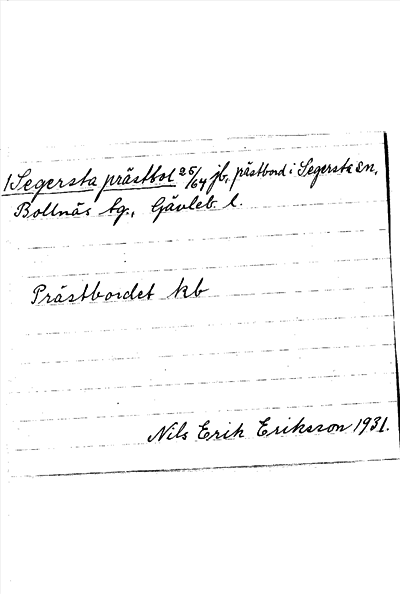 1 Segersta prästbol 25/64 jb, prästbord i Segersta sn,
Bollnäs tg., Gävleb. l.
Prästbordet kb
Nils Erik Eriksson 1931.